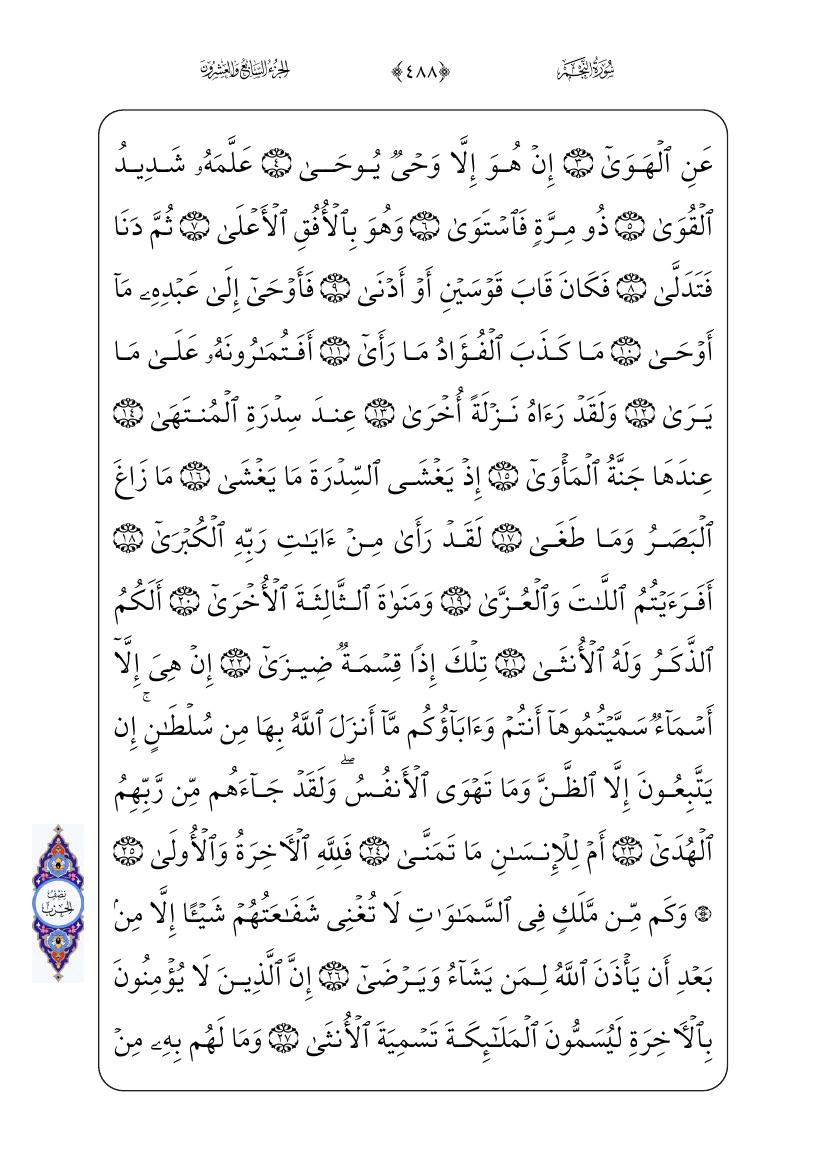 سُورَةُ النَّجْمِ ﴿٤٨٨﴾ الجُزْءُ السَّابِعُ وَالعِشْرُونَ
عَنِ ٱلْهَوَىٰٓ ٣ إِنْ هُوَ إِلَّا وَحْىٌ يُوحَىٰ ٤ عَلَّمَهُۥ شَدِيدُ
ٱلْقُوَىٰ ٥ ذُو مِرَّةٍ فَٱسْتَوَىٰ ٦ وَهُوَ بِٱلْأُفُقِ ٱلْأَعْلَىٰ ٧ ثُمَّ دَنَا
فَتَدَلَّىٰ ٨ فَكَانَ قَابَ قَوْسَيْنِ أَوْ أَدْنَىٰ ٩ فَأَوْحَىٰٓ إِلَىٰ عَبْدِهِۦ مَآ
أَوْحَىٰ ١٠ مَا كَذَبَ ٱلْفُؤَادُ مَا رَأَىٰٓ ١١ أَفَتُمَٰرُونَهُۥ عَلَىٰ مَا
يَرَىٰ ١٢ وَلَقَدْ رَءَاهُ نَزْلَةً أُخْرَىٰ ١٣ عِندَ سِدْرَةِ ٱلْمُنتَهَىٰ ١٤
عِندَهَا جَنَّةُ ٱلْمَأْوَىٰٓ ١٥ إِذْ يَغْشَى ٱلسِّدْرَةَ مَا يَغْشَىٰ ١٦ مَا زَاغَ
ٱلْبَصَرُ وَمَا طَغَىٰ ١٧ لَقَدْ رَأَىٰ مِنْ ءَايَٰتِ رَبِّهِ ٱلْكُبْرَىٰٓ ١٨
أَفَرَءَيْتُمُ ٱللَّٰتَ وَٱلْعُزَّىٰ ١٩ وَمَنَوٰةَ ٱلثَّالِثَةَ ٱلْأُخْرَىٰٓ ٢٠ أَلَكُمُ
ٱلذَّكَرُ وَلَهُ ٱلْأُنثَىٰ ٢١ تِلْكَ إِذًا قِسْمَةٌ ضِيزَىٰٓ ٢٢ إِنْ هِىَ إِلَّآ
أَسْمَآءٌ سَمَّيْتُمُوهَآ أَنتُمْ وَءَابَآؤُكُم مَّآ أَنزَلَ ٱللَّهُ بِهَا مِن سُلْطَٰنٍ ۚ إِن
يَتَّبِعُونَ إِلَّا ٱلظَّنَّ وَمَا تَهْوَى ٱلْأَنفُسُ ۖ وَلَقَدْ جَآءَهُم مِّن رَّبِّهِمُ
ٱلْهُدَىٰٓ ٢٣ أَمْ لِلْإِنسَٰنِ مَا تَمَنَّىٰ ٢٤ فَلِلَّهِ ٱلْءَاخِرَةُ وَٱلْأُولَىٰ ٢٥
نِصْفُ الحِزْبِ
۞ وَكَم مِّن مَّلَكٍ فِى ٱلسَّمَٰوَٰتِ لَا تُغْنِى شَفَٰعَتُهُمْ شَيْـًٔا إِلَّا مِنۢ
بَعْدِ أَن يَأْذَنَ ٱللَّهُ لِمَن يَشَآءُ وَيَرْضَىٰٓ ٢٦ إِنَّ ٱلَّذِينَ لَا يُؤْمِنُونَ
بِٱلْءَاخِرَةِ لَيُسَمُّونَ ٱلْمَلَٰٓئِكَةَ تَسْمِيَةَ ٱلْأُنثَىٰ ٢٧ وَمَا لَهُم بِهِۦ مِنْ